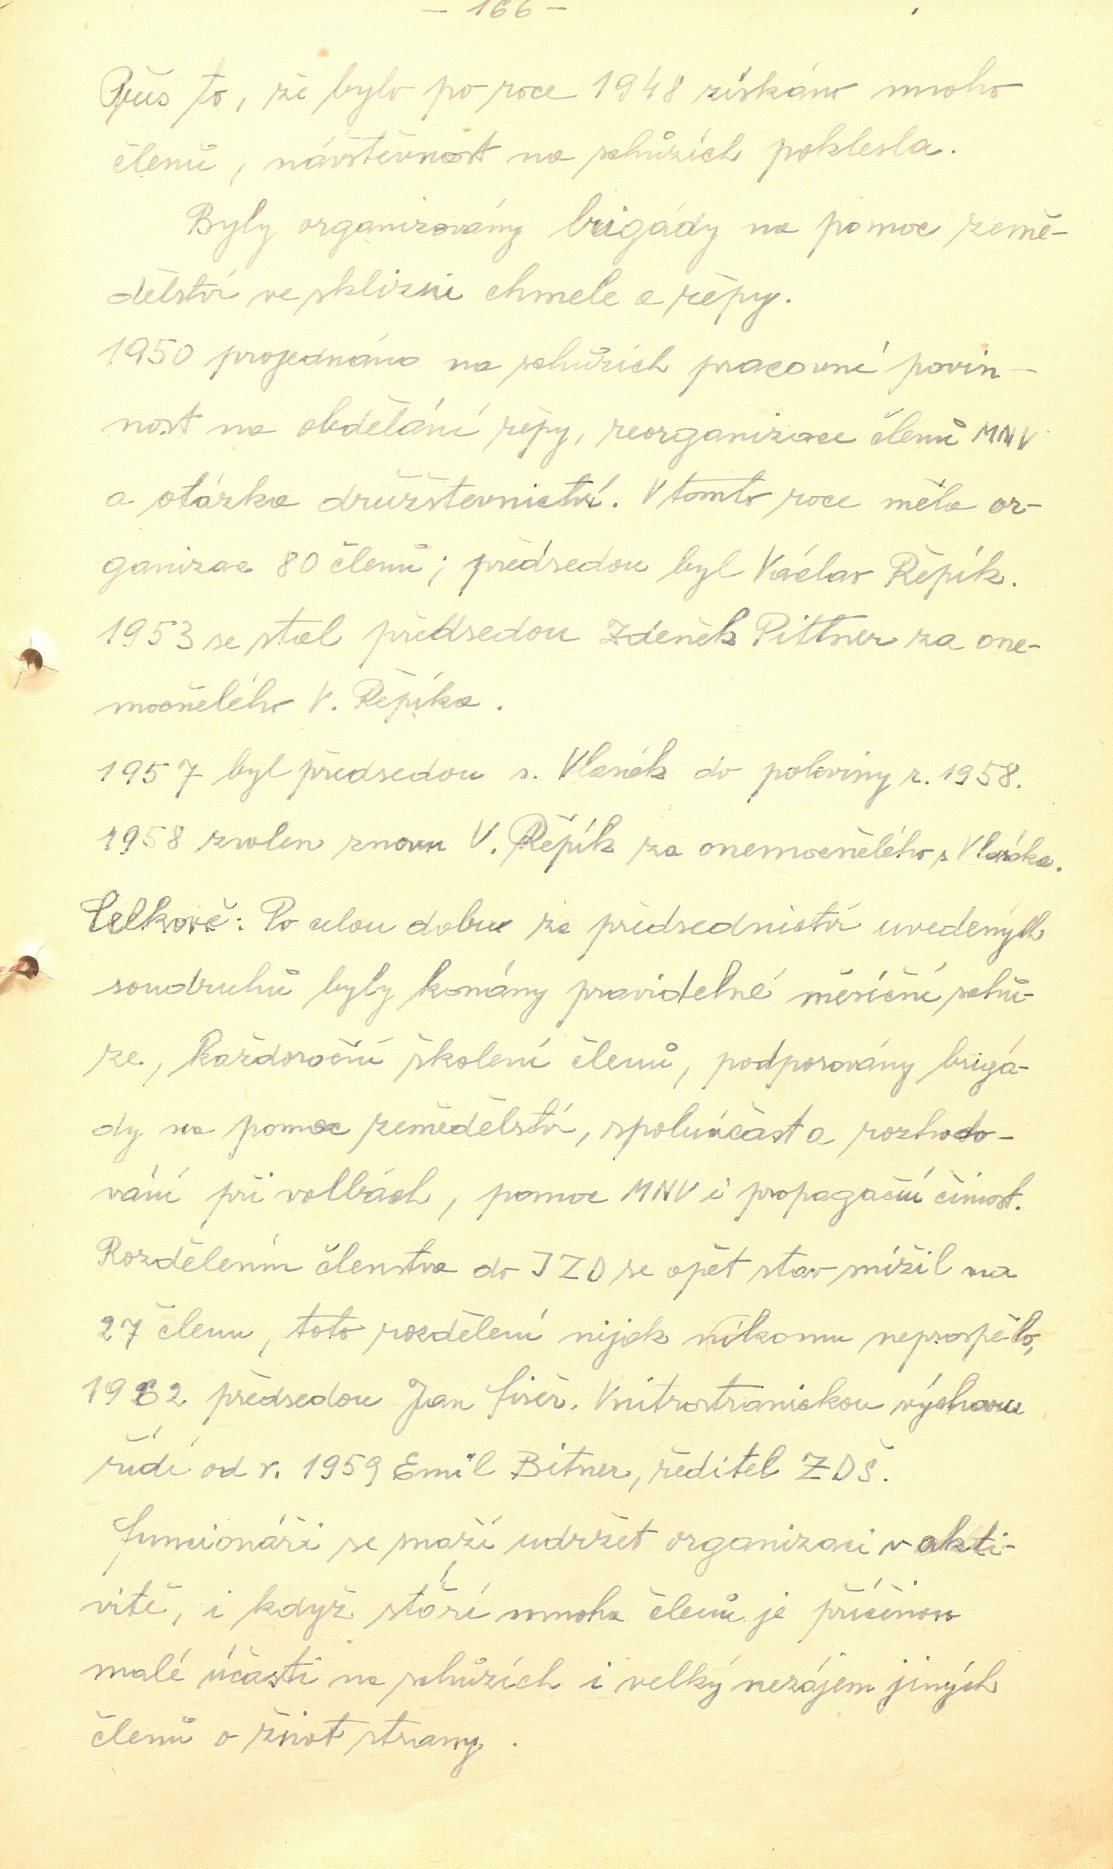 - 166 -
Přes to, že bylo po roce 1948 získáno mnoho
členů, návštěvnost na schůzích poklesla.
Byly organizovány brigády na pomoc země-
dělství ve sklizni chmele a řepy.
1950 projednána na schůzích pracovní povin-
nost na obdělání řepy, reorganizace členů MNV
a otázka družštevnictví. V tomto roce měla or-
ganizac 80 členů; předsedou byl Václav Řepík.
1953 se stal předsedou Zdeněk Pittner za one-
mocnělého V. Řepíka.
1957 byl předsedou s. Vlasák do poloviny r. 1958.
1958 zvolen znovu V. Řepík za onemocnělého s Vlasáka.
Celkově: Po celou dobu za předsednictví uvedených
soudruhů byly konány pravidelné měsíční schů-
ze, každoroční školení členů, podporovány brigá-
dy na pomoc zemědělství, spoluúčast a rozhodo-
vání při volbách, pomoc MNV i propagační činost.
Rozdělením členstva do JZD se opět stav snížil na
27 členu, toto rozdělení nijak nikomu neprospělo,
1962 předsedou Jan. Vnitrostranickou výchovu
řídí od r. 1959 Emil Bitner, ředitel ZDŠ.
funcionáři se snaží udržet organizaci v akti-
vitě, i když stáří mnoha členů je příčinou
malé účasti na schůzích i velký nezájem jiných
členů o život strany.